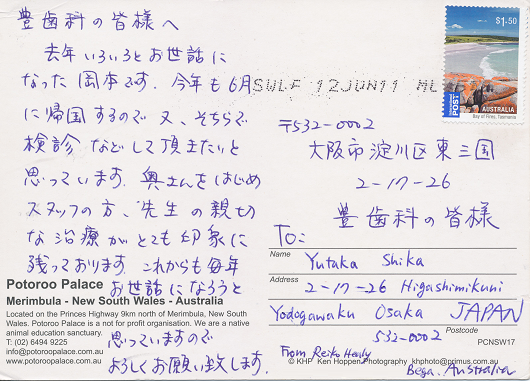 豊歯科の皆様へ
去年いろいろとお世話に
なった岡本です。今年も6月
に帰国するので又、そちらで
検診などして頂きたいと
思っています。奥さんをはじめ
スタッフの方、先生の親切
な治療がとても印象に
残っております。これからも毎年
お世話になろうと
思っていますので
よろしくお願い致します。
Potoroo Palace
Merimbula - New South Wales - Australia
Located on the Princes Highway 9km north of Merimbula, New South
Wales. Potoroo Palace is a not for profit organisation. We are a native
animal education sanctuary.
T: (02) 6494 9225
info@potoroopalace.com.au
www.potoroopalace.com
SWLF 12JUN11
$1.50
INTERNATIONAL POST
AUSTRALIA
Bay of Fires, Tasmania
〒532-0002
大阪市淀川区東三国
2-17-26
豊歯科の皆様
To:
Name Yutaka Shika
Address 2-17-26 Higashimikuni
Yodogawaku Osaka JAPAN
Postcode 532-0002
PCNSW17
© KHP Ken Hoppen Photography khphoto@primus.com.au
From Reiko Healy
Bega, Australia